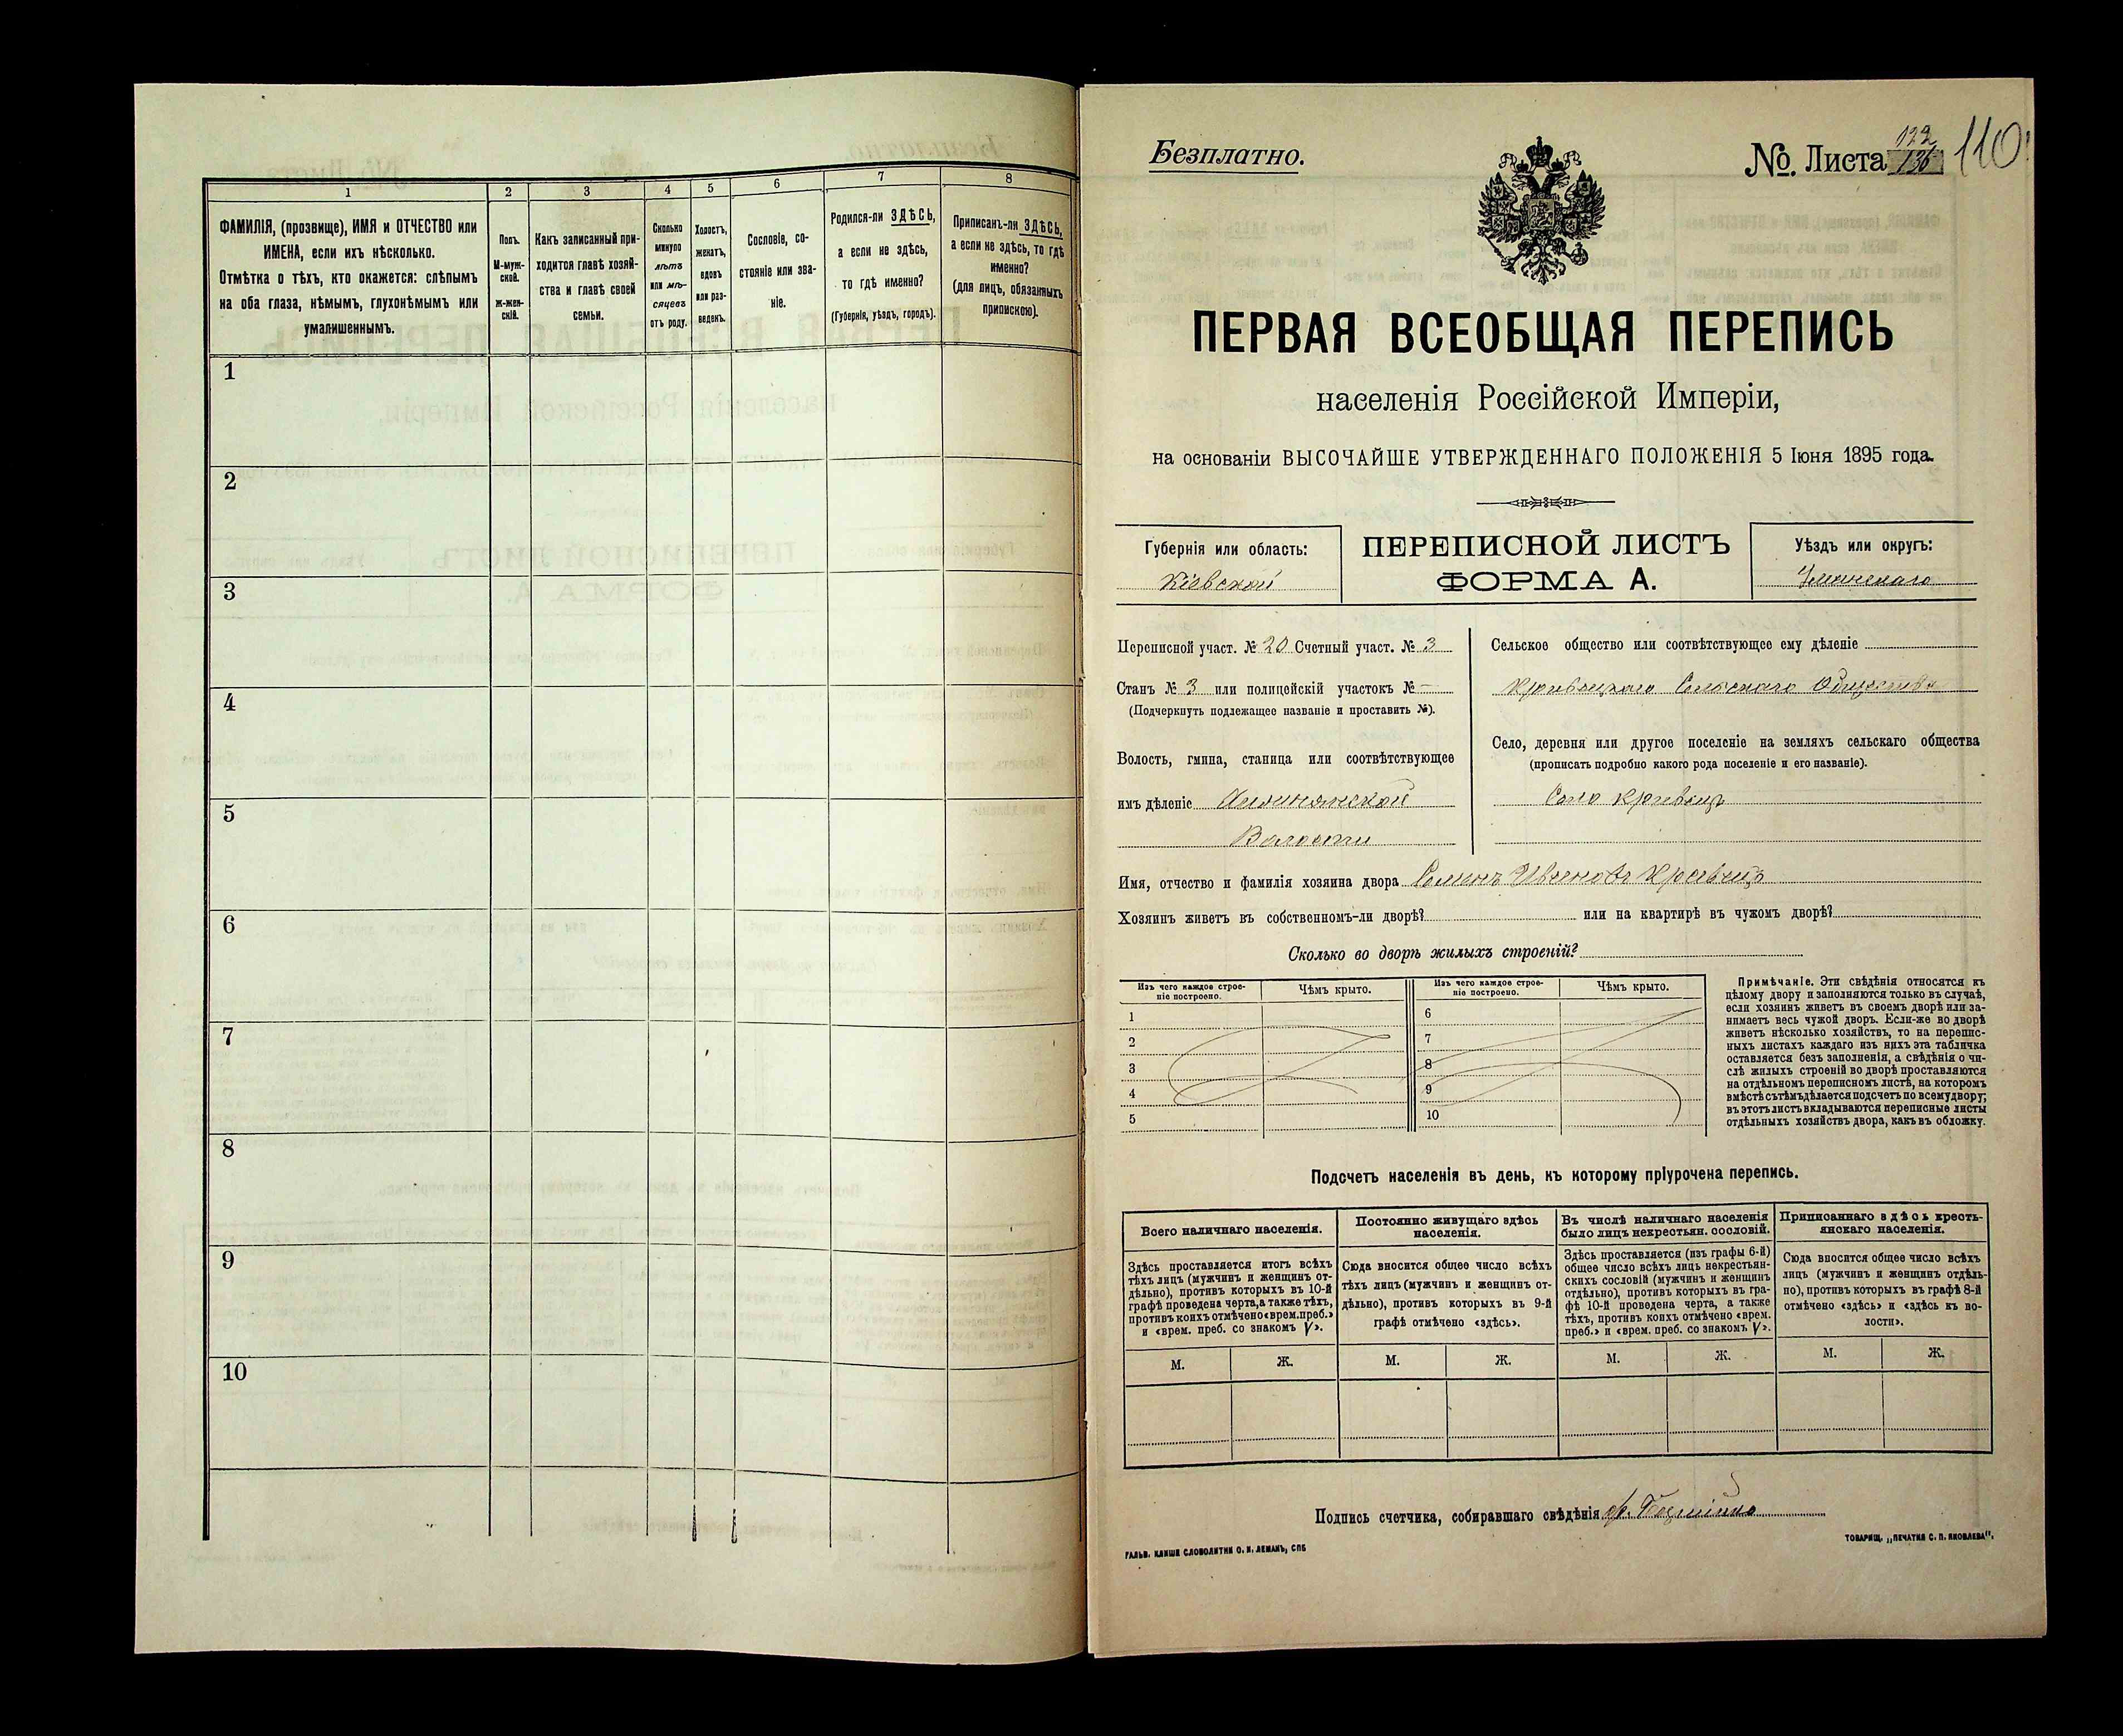 1
2
3
4
5
6
7
8
ФАМИЛІЯ, (прозвище), ИМЯ и ОТЧЕСТВО или
ИМЕНА, если ихъ нѣсколько.
Отмѣтка о тѣхъ, кто окажется: слѣпымъ
на оба глаза, нѣмымъ, глухонѣмымъ или
умалишеннымъ.
Полъ.
М-муж-
ской.
ж-жен-
скій.
Какъ записанный при-
ходится главѣ хозяй-
ства и главѣ своей
семьи.
Сколько
минуло
лѣтъ
или мѣ-
сяцевъ
отъ роду.
Холостъ,
женатъ,
вдовъ
или раз-
веденъ.
Сословіе, со-
стояніе или зва-
ніе.
Родился-ли ЗДѢСЬ,
а если не здѣсь,
то гдѣ именно?
(Губернія, уѣздъ, городъ).
Приписанъ-ли ЗДѢСЬ,
а если не здѣсь, то гдѣ
именно?
(для лицъ, обязанныхъ
припискою).
1
2
3
4
5
6
7
8
9
10
Безплатно.
No. Листа 122
136
110
ПЕРВАЯ ВСЕОБЩАЯ ПЕРЕПИСЬ
населенія Россійской Имперіи,
на основаніи ВЫСОЧАЙШЕ УТВЕРЖДЕННАГО ПОЛОЖЕНІЯ 5 Іюня 1895 года.
Губернія или область:
Кіевской
ПЕРЕПИСНОЙ ЛИСТЪ
ФОРМА А.
Уѣздъ или округъ:
Уманскаго
Переписной участ. № 20 Счетный участ. № 3
Станъ № 3 или полицейскій участокъ № —
(Подчеркнуть подлежащее названіе и проставить №).
Волость, гмина, станица или соотвѣтствующее
имъ дѣленіе
Волости
Сельское общество или соотвѣтствующее ему дѣленіе
Сельскаго Общества
Село, деревня или другое поселеніе на земляхъ сельскаго общества
(прописать подробно какого рода поселеніе и его названіе).
Село
Имя, отчество и фамилія хозяина двора Семенъ Ивановъ Кравецъ
Хозяинъ живетъ въ собственномъ-ли дворѣ? или на квартирѣ въ чужомъ дворѣ?
Сколько во дворѣ жилыхъ строеній?
Изъ чего каждое строе-
ніе построено.
Чѣмъ крыто.
Изъ чего каждое строе-
ніе построено.
Чѣмъ крыто.
1
2
3
4
5
6
7
8
9
10
Примѣчаніе. Эти свѣдѣнія относятся къ
цѣлому двору и заполняются только въ случаѣ,
если хозяинъ живетъ въ своемъ дворѣ или за-
нимаетъ весь чужой дворъ. Если-же во дворѣ
живетъ нѣсколько хозяйствъ, то на перепис-
ныхъ листахъ каждаго изъ нихъ эта табличка
оставляется безъ заполненія, а свѣдѣнія о чи-
слѣ жилыхъ строеній во дворѣ проставляются
на отдѣльномъ переписномъ листѣ, на которомъ
вмѣстѣ съ тѣмъ дѣлается подсчетъ по всему двору;
въ этотъ листъ вкладываются переписные листы
отдѣльныхъ хозяйствъ двора, какъ въ обложку.
Подсчетъ населенія въ день, къ которому пріурочена перепись.
Всего наличнаго населенія.
Постоянно живущаго здѣсь
населенія.
Въ числѣ наличнаго населенія
было лицъ некрестьян. сословій.
Приписаннаго здѣсь кресть-
янскаго населенія.
Здѣсь проставляется итогъ всѣхъ
тѣхъ лицъ (мужчинъ и женщинъ от-
дѣльно), противъ которыхъ въ 10-й
графѣ проведена черта, а также тѣхъ,
противъ коихъ отмѣчено «врем. преб.»
и «врем. преб. со знакомъ V».
Сюда вносится общее число всѣхъ
тѣхъ лицъ (мужчинъ и женщинъ от-
дѣльно), противъ которыхъ въ 9-й
графѣ отмѣчено «здѣсь».
Здѣсь проставляется (изъ графы 6-й)
общее число всѣхъ лицъ некрестьян-
скихъ сословій (мужчинъ и женщинъ
отдѣльно), противъ которыхъ въ гра-
фѣ 10-й проведена черта, а также
тѣхъ, противъ коихъ отмѣчено «врем.
преб.» и «врем. преб. со знакомъ V».
Сюда вносится общее число всѣхъ
лицъ (мужчинъ и женщинъ отдѣль-
но), противъ которыхъ въ графѣ 8-й
отмѣчено «здѣсь» и «здѣсь къ во-
лости».
М.
Ж.
М.
Ж.
М.
Ж.
М.
Ж.
Подпись счетчика, собиравшаго свѣдѣнія
ГАЛЬВ. КЛИШЕ СЛОВОЛИТНИ О. И. ЛЕМАНЪ, СПБ
ТОВАРИЩ. „ПЕЧАТНЯ С. П. ЯКОВЛЕВА".